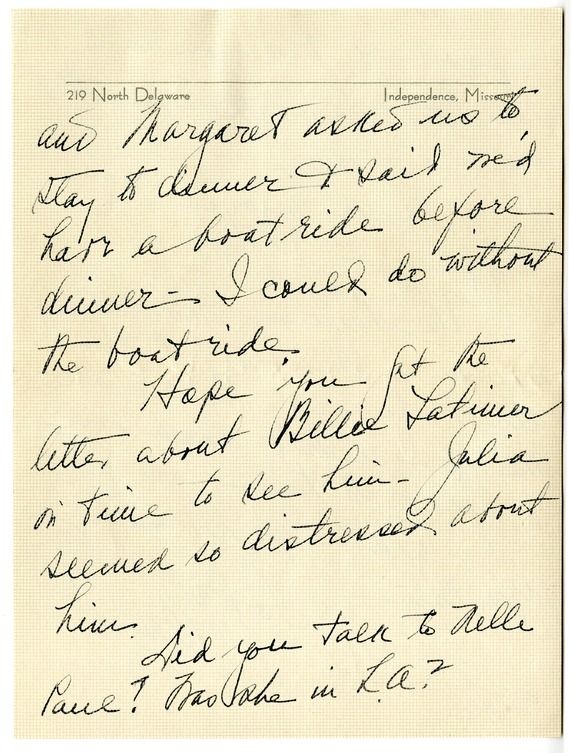 219 North Delaware Independence, Missouri
and Margaret asked us to
stay to dinner & said we'd
have a boat ride before
dinner - I could do without
the boat ride.
Hope you got the
letter about Billie Latimer
in time to see him - Julia
seemed so distressed about
him.
Did you talk to Nelle
Paul? Was she in L.A.?